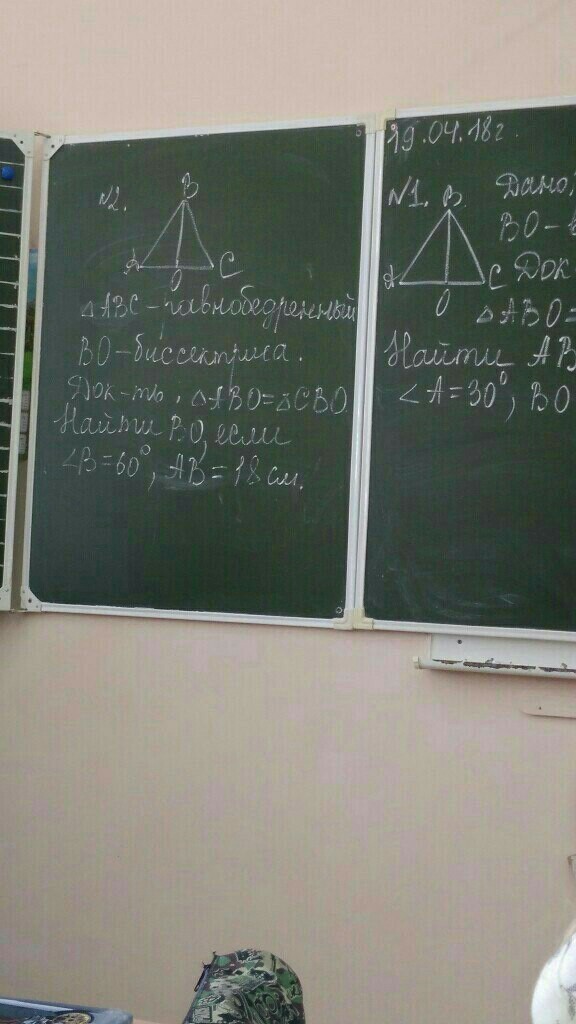 №2.
B
A
O
C
△ABC - равнобедренный
BO - биссектриса.
Док-ть, △ABO=△CBO
Найти BO, если
∠B=60°, AB=18 см.
19.04.18г.
№1.
B
Дано:
BO -
A
O
C
Док
△ABO=
Найти AB
∠A=30°, BO